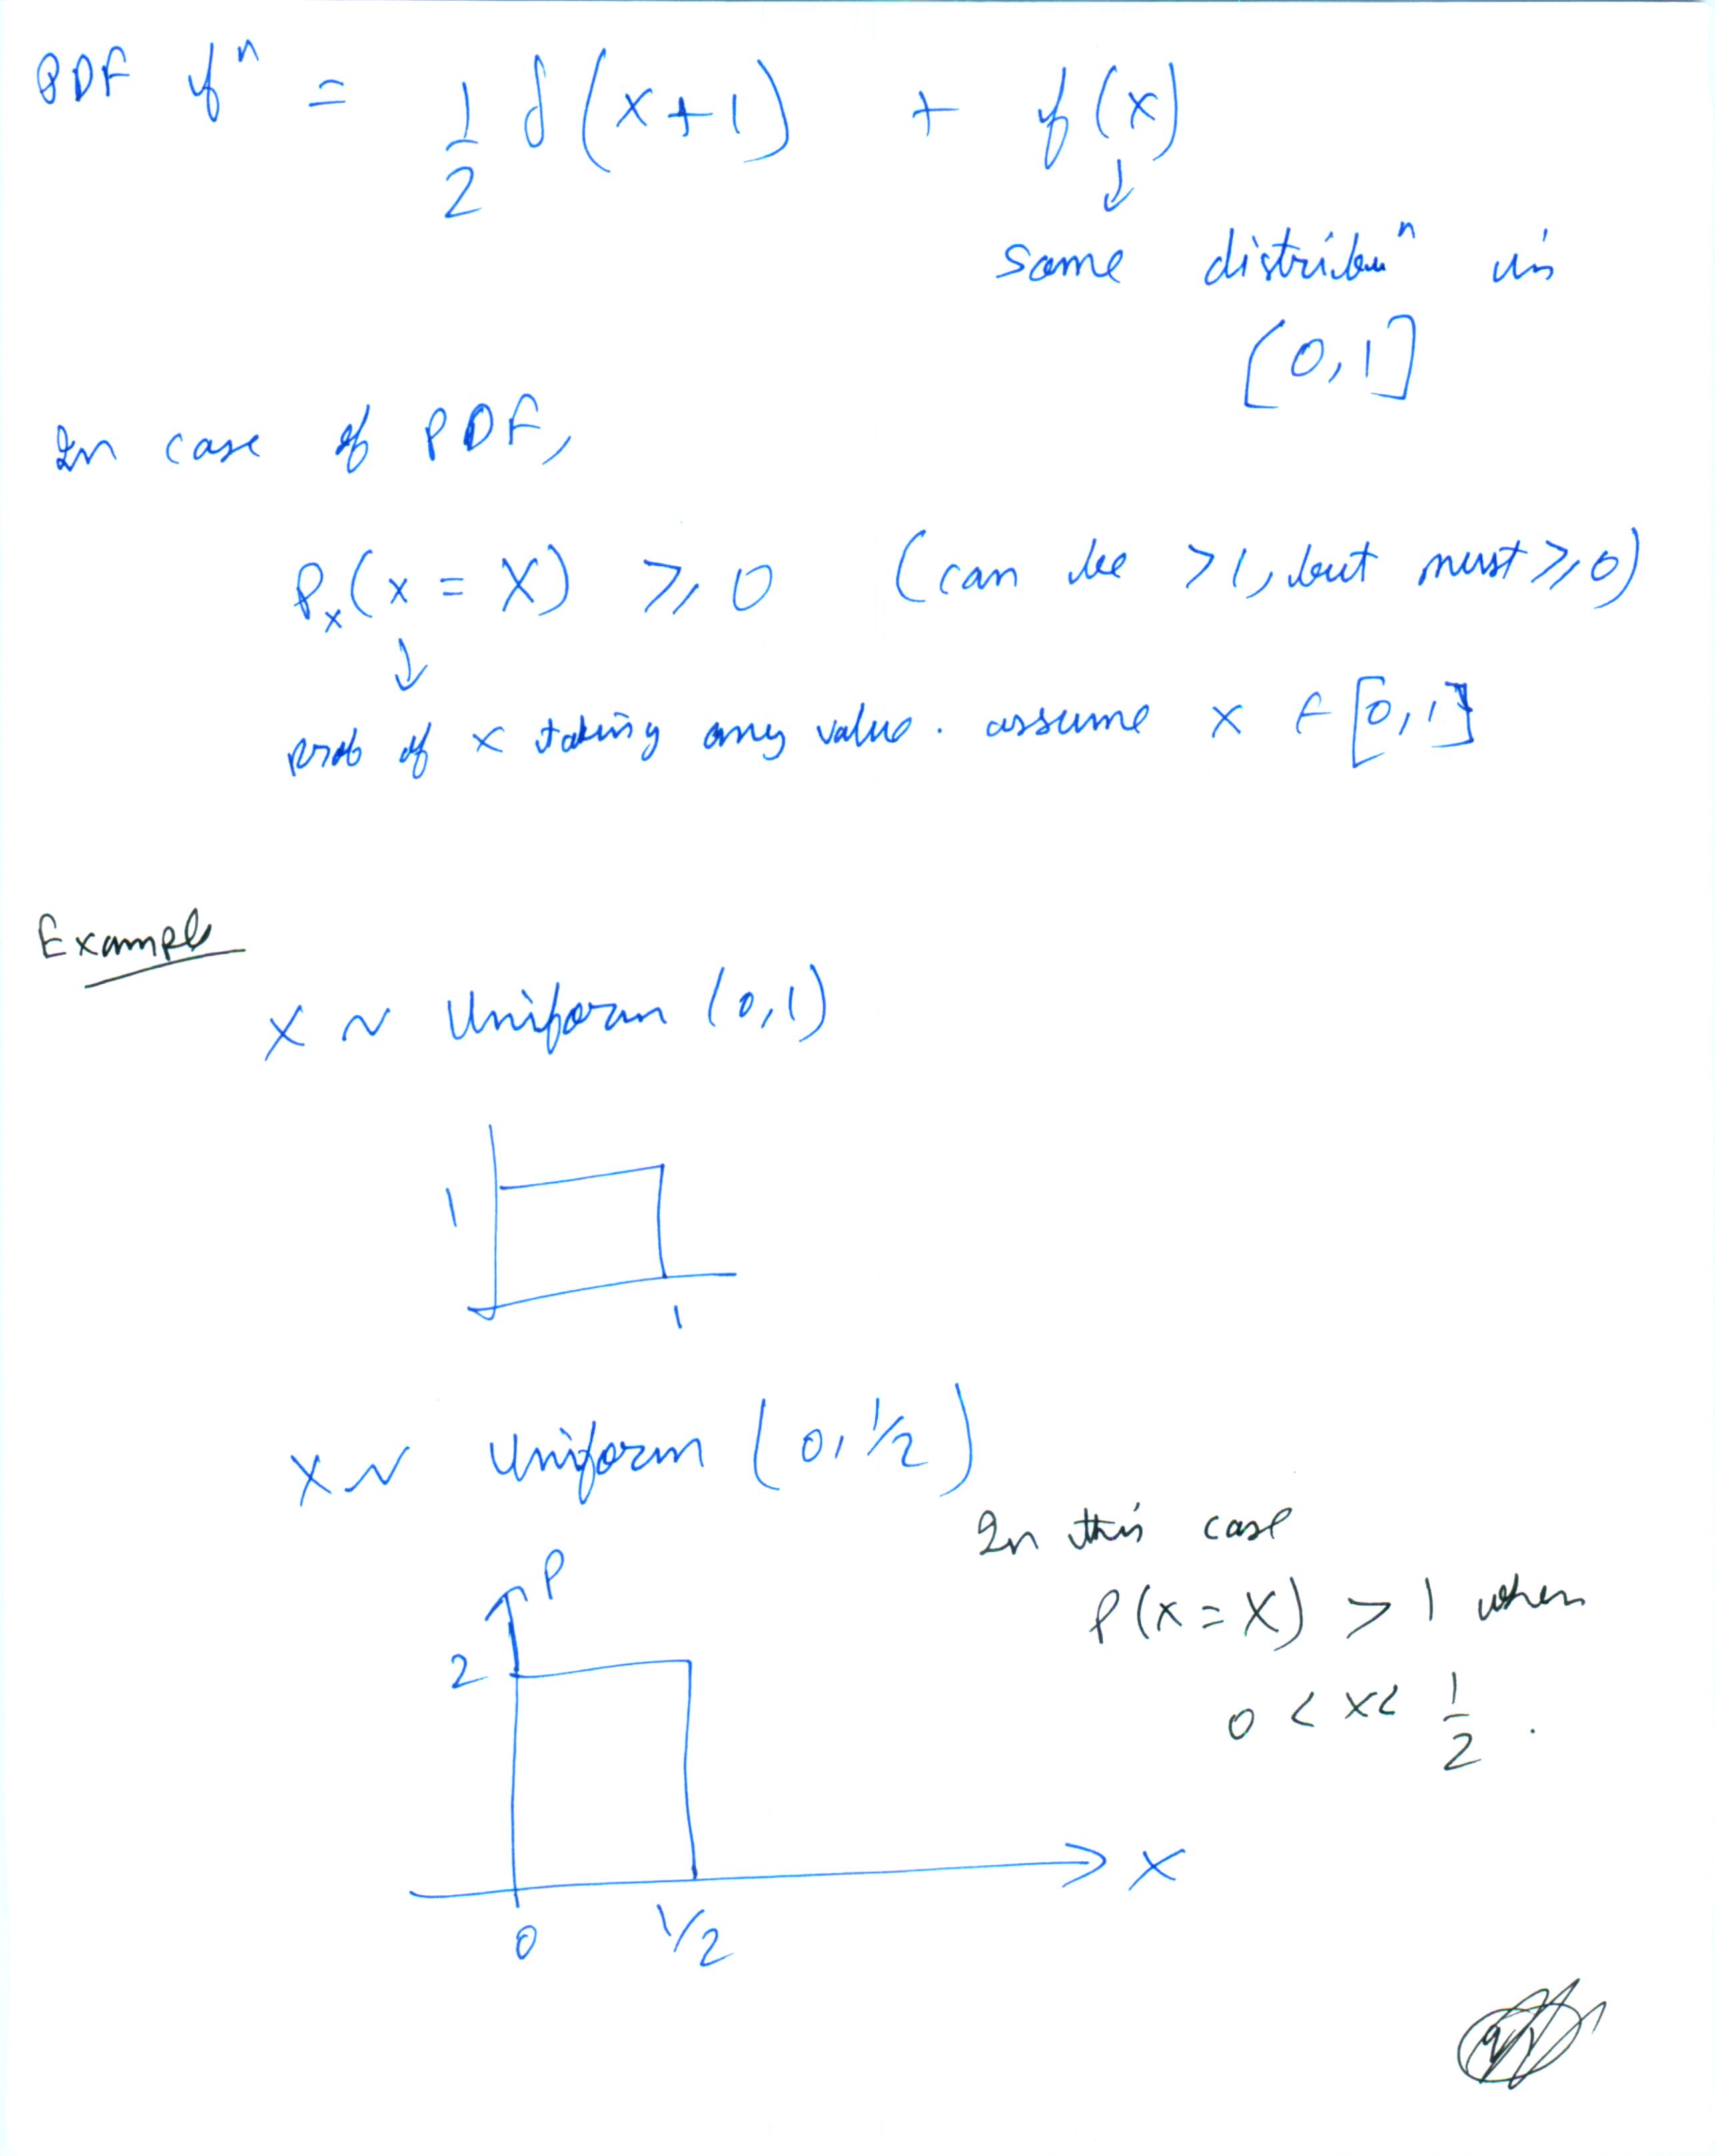 PDF fⁿ = 1/2 δ(x+1) + f(x)
↓
some distribuⁿ in
[0,1]
In case of PDF,
Pₓ(x = X) ≥ 0 (can be >1, but must ≥ 0)
↓
prob of x taking any value. assume x ∈ [0,1]
Example
X ~ Uniform (0,1)
1
1
X ~ Uniform (0, 1/2)
In this case
P
P(x = X) > 1 when
2
0 < x < 1/2 .
X
0 1/2